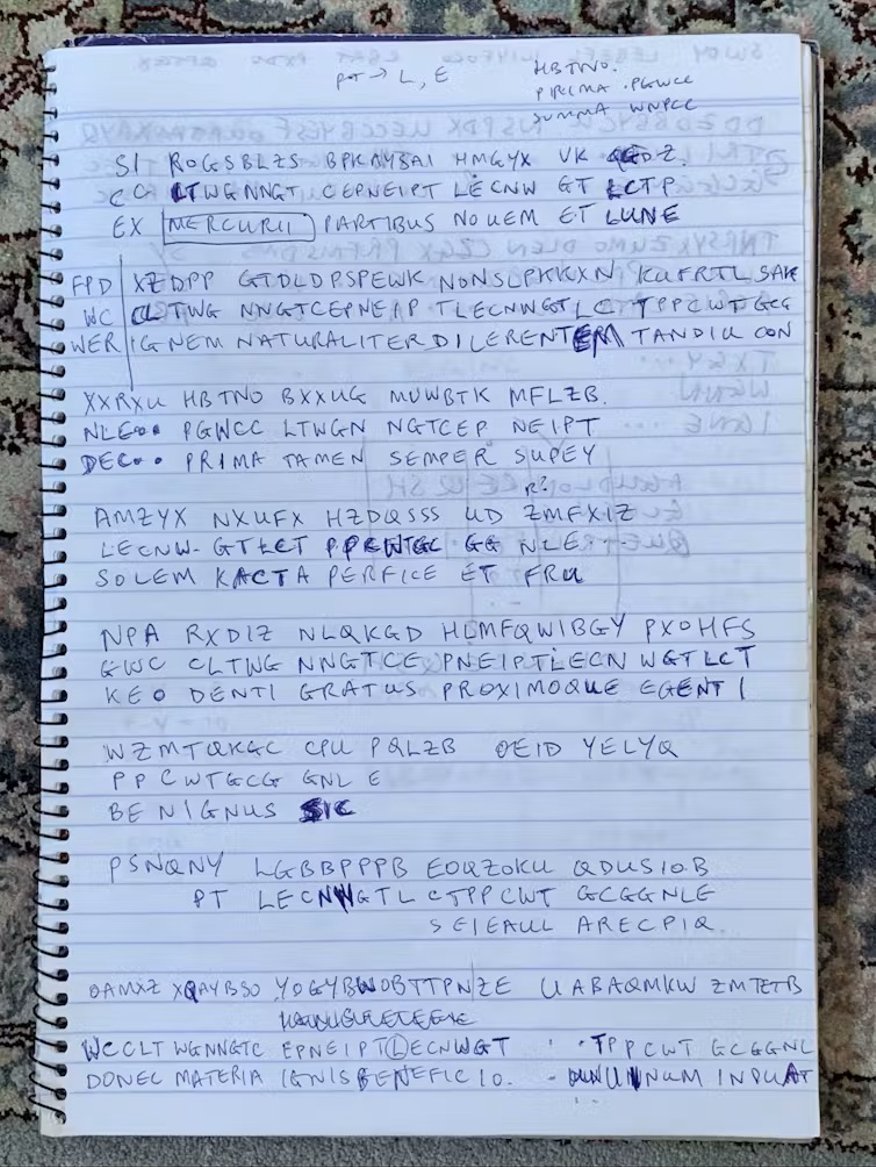 pt → L, E
HBTNO.
PRIMA . PGWCC
SUMMA WNPCC
SI ROGSBLZS BPKAYBAI HMGYX VK
CC LTWGNNGT CEPNEIPT LECNW GT LCTP
EX MERCURII PARTIBUS NOUEM ET LUNE
FPD XZDPP GTDLDPSPEWK NONSLPKKXN KUFRTL SAK
WC CLTWG NNGTCEPNEIP TLECNWGTLC TPPCWTGCG
WER IGNEM NATURALITER DILERENTEM TANDIU CON
XXRXU HBTNO BXXUG MUWBTK MFLZB.
NLE PGWCC LTWGN NGTCEP NEIPT
DEC PRIMA TAMEN SEMPER SUPEY
R?
AMZYX NXUFX HZDQSSS UD ZMFXIZ
LECNW. GTLCT PPCWTGC GG NLE
SOLEM KACTA PERFICE ET FRU
NPA RXDIZ NLQKGD HLMFQWIBGY PXOHFS
GWC CLTWG NNGTCE PNEIPTLECN WGTLCT
KEO DENTI GRATUS PROXIMOQUE EGENTI
WZMTQKGC CPU PQLZB OEID YELYQ
PPCWTGCG GNL E
BENIGNUS SIC
PSNQNY LGBBPPPB EOQZOKU QDUSIOB
PT LECNWGTL CTPPCWT GCGGNLE
SEIEAUL ARECPIQ
OAMXZ XQAYBSO YOGYBWOBTTPNZE UABAQMKW ZMTETB
WCCLT WGNNGTC EPNEIPTLECNWGT TPPCWT GCGGNL
DONEC MATERIA IGNISBENEFICIO. INDUAT